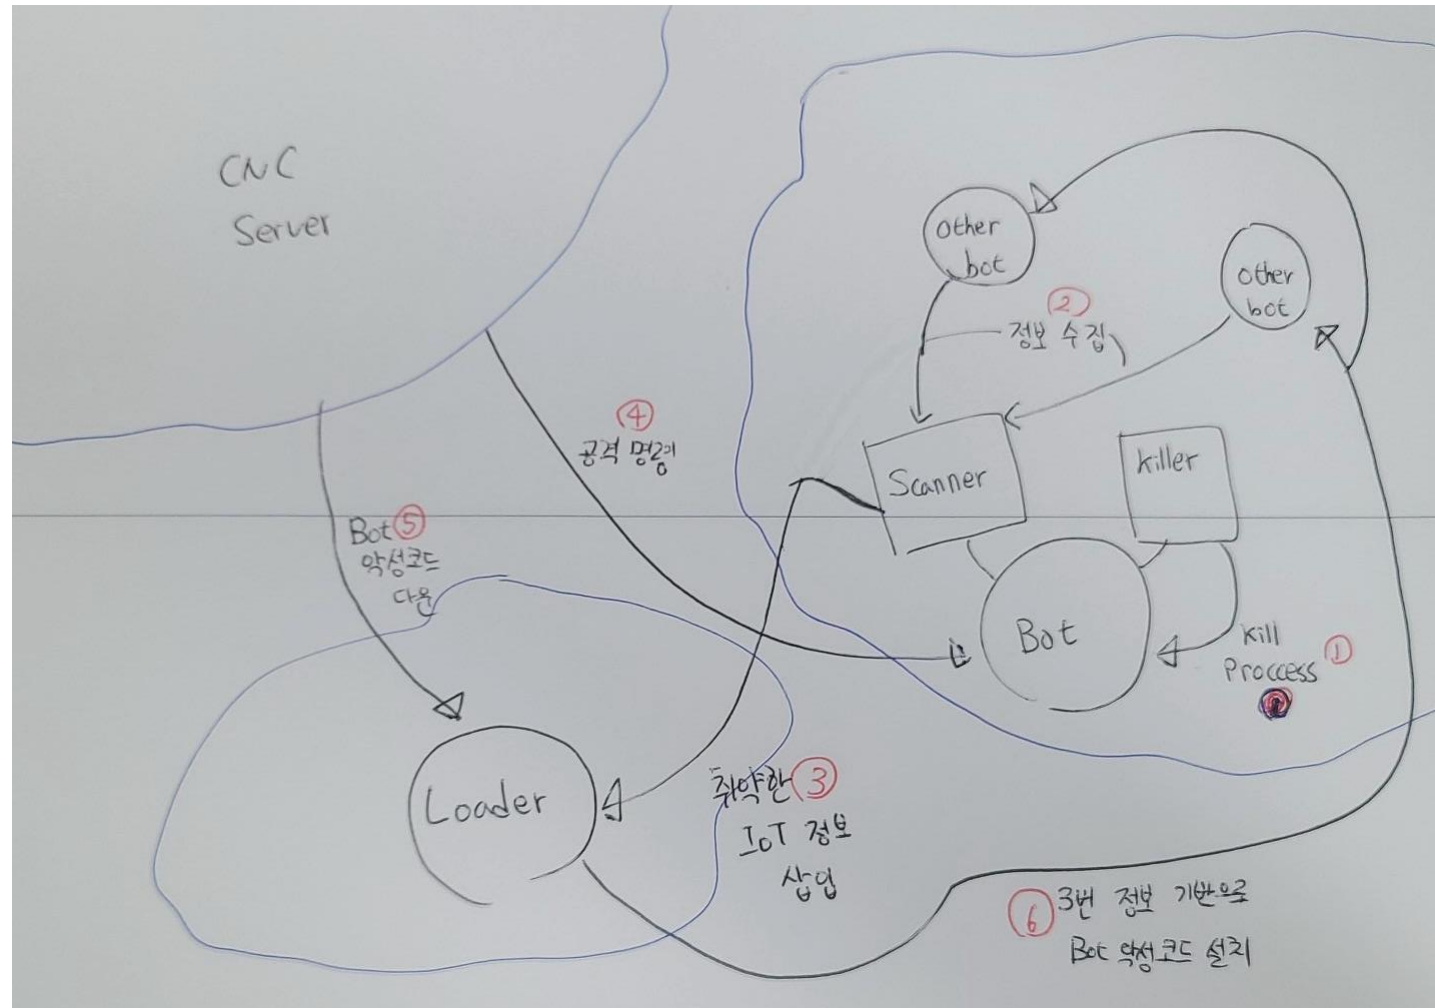 CNC
Server
Other
bot
Other
bot
②
정보 수집
④
공격 명령
Scanner
Killer
Bot ⑤
악성코드
다운
Bot
Kill
Proccess ①
Loader
취약한 ③
IoT 정보
삽입
⑥ 3번 정보 기반으로
Bot 악성코드 설치